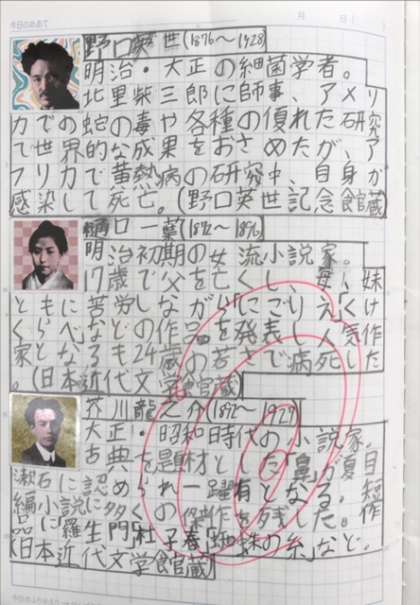 野口英世(1876〜1928)
明治・大正の細菌学者。
北里柴三郎に師事、アメリ
カでの蛇の毒や各種の優れた研究
で世界的な成果をおさめたが、ア
フリカで黄熱病の研究中、自身が
感染して死亡。(野口英世記念館蔵)
樋口一葉(1872〜1896)
明治初期の女流小説家。
17歳で父を亡くし、母、妹
ともに苦労しながら「にごりえ」「たけ
くらべ」などの作品を発表し人気作
家となるも24歳の若さで病死した
。(日本近代文学館蔵)
芥川龍之介(1892〜1927)
大正・昭和時代の小説家。
古典を題材とした「鼻」が夏目
漱石に認められ一躍有となる。短
編小説に多くの傑作を残した。作
品に「羅生門」「杜子春」「蜘蛛の糸」など。
(日本近代文学館蔵)